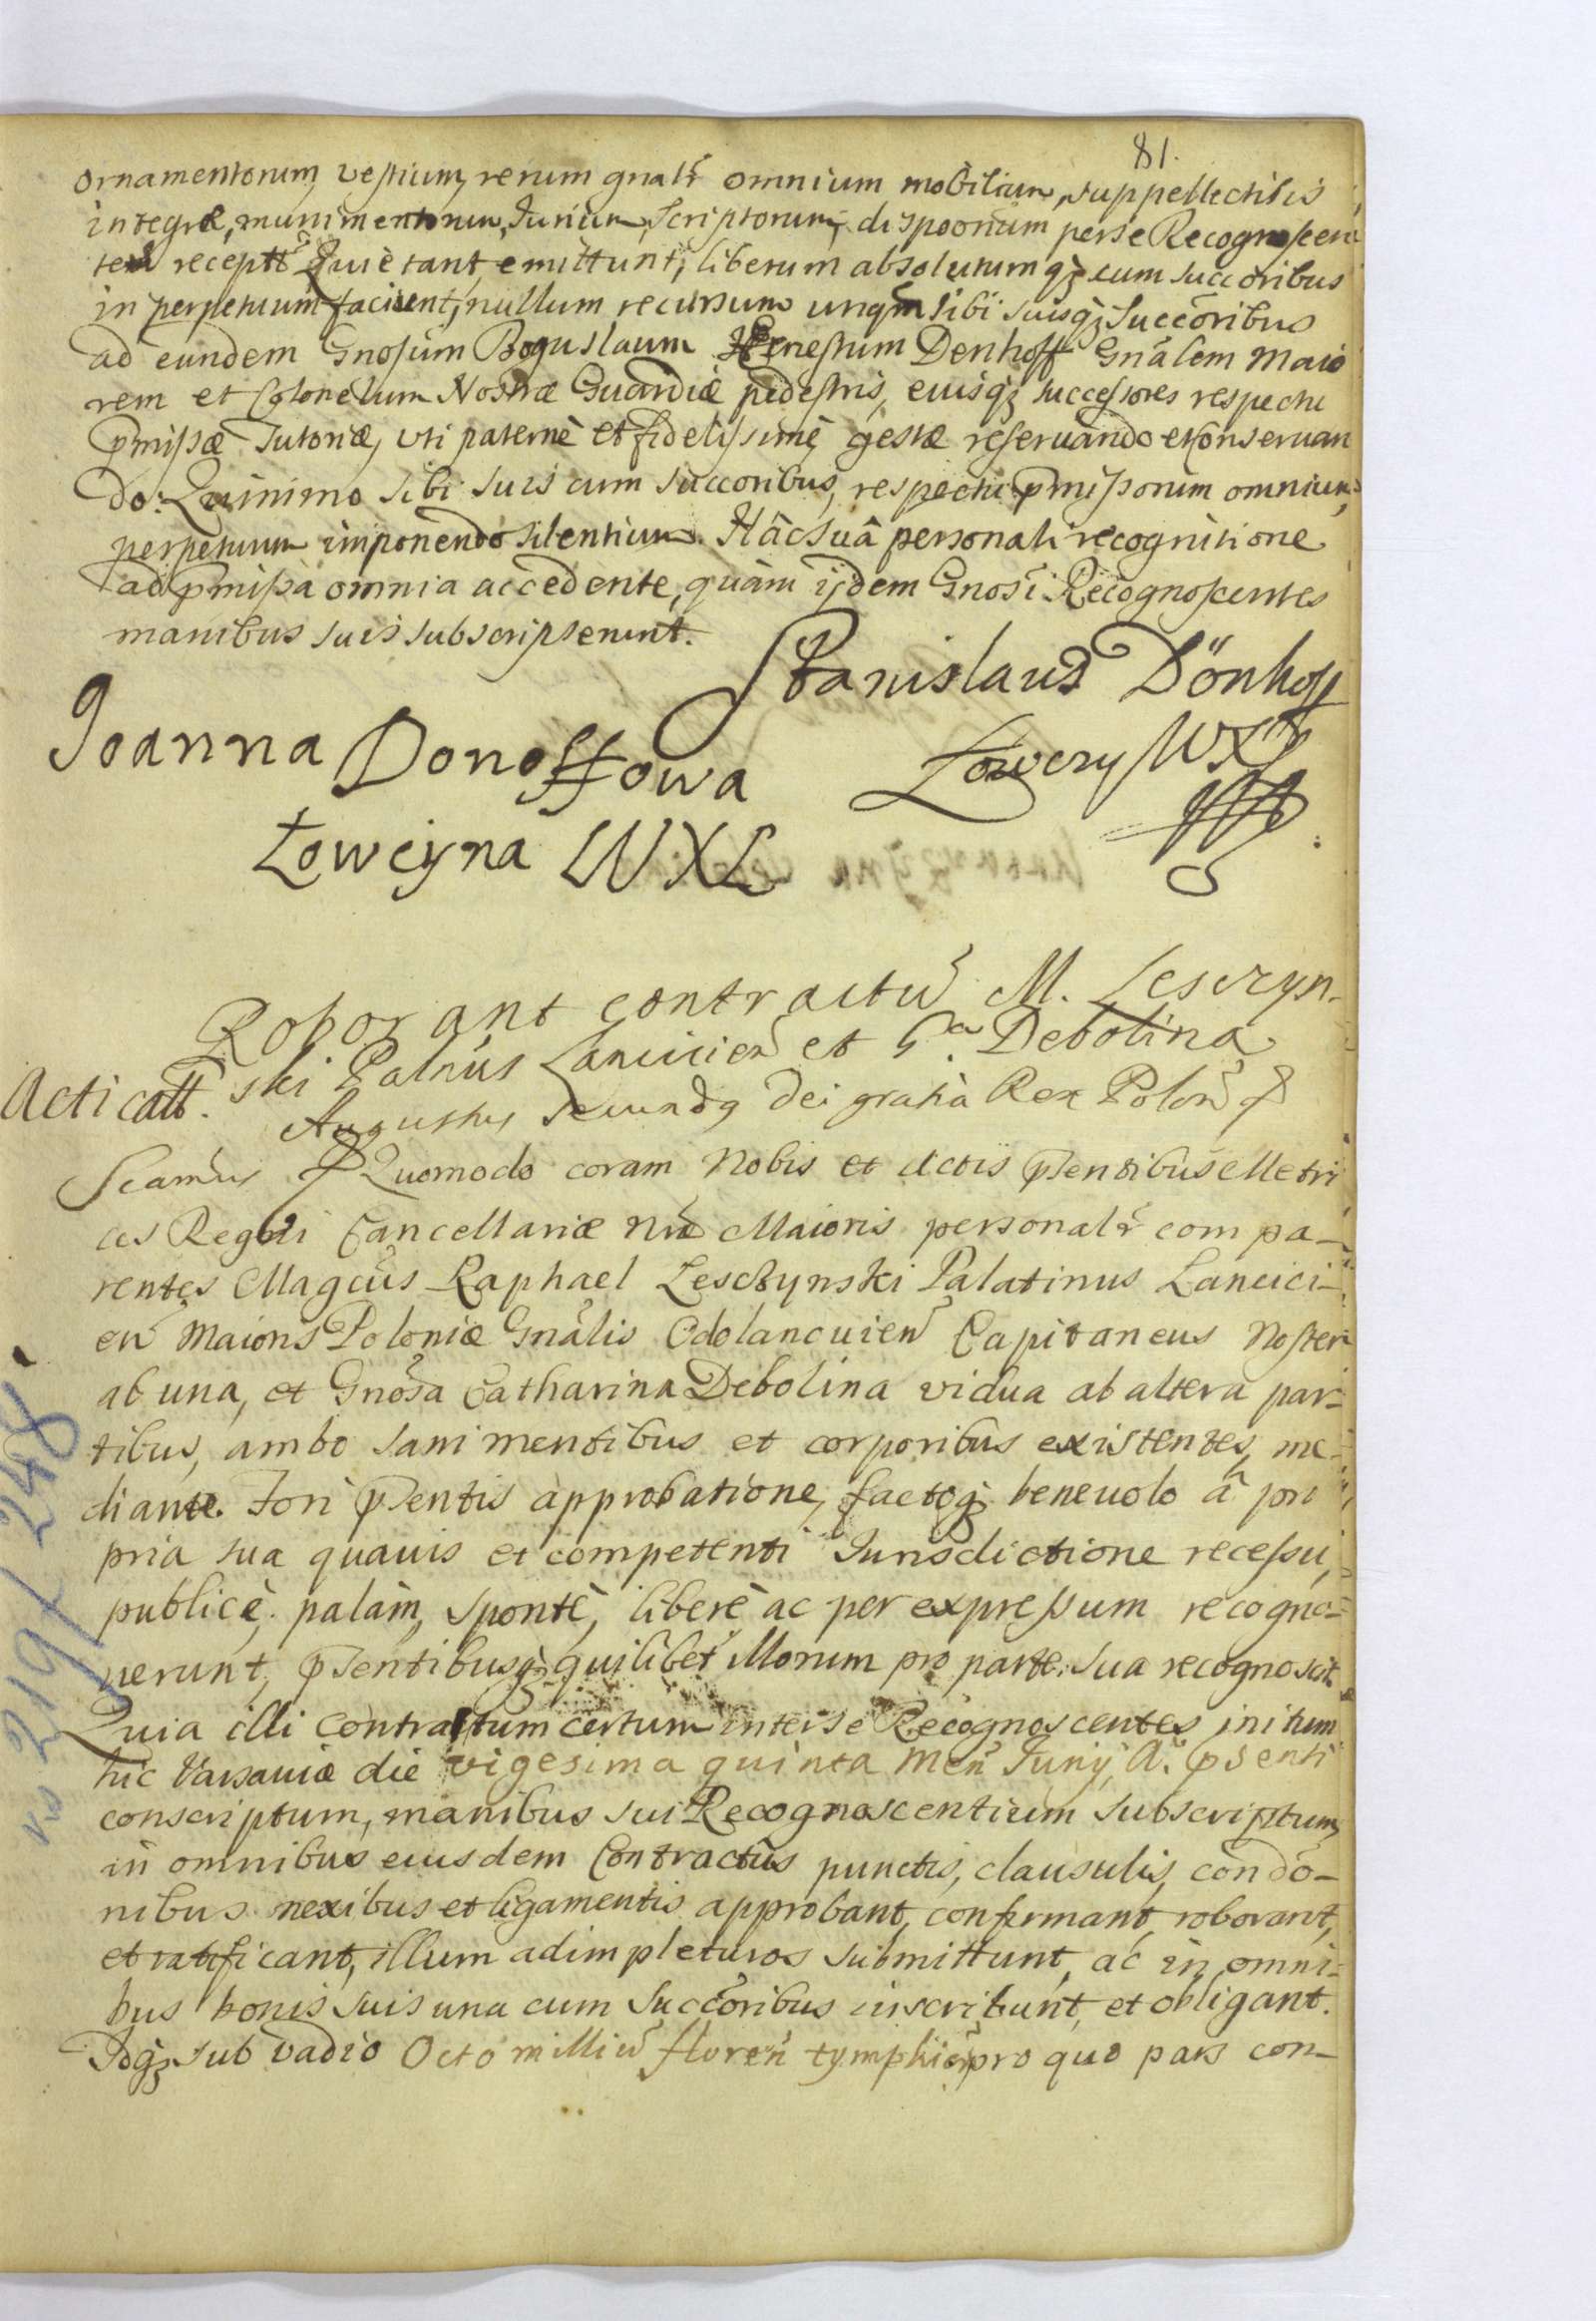 81.
ornamentorum, vestium, rerum gnalr omnium mobilium, suppellectilis
integræ, munimentorum, Jurium, Scriptorum, dispoonum per se Recognoscen
tes receptt Quietant, emittunt, liberum absolutumq3 cum succoribus
in perpetuum faciunt, nullum recursum unqm sibi suisq3 Succoribus
ad eundem Gnosum Boguslaum Ernestum Denhoff Gnalem Maio
rem et Colonellum Nostræ Guardiæ pedestris, eiusq3 successores respectu
pmissæ Tutoriæ, uti paternè et fidelissimè gestæ reservando et conservan
do. Quinimo sibi suis cum succoribus, respectu pmissorum omnium,
perpetuum imponendo silentium. Hâc suâ personali recognitione
ad pmissa omnia accedente, quàm ijdem Gnosi Recognoscentes
manibus suis subscripserunt.
Stanislaus Dönhoff
Joanna Donoffowa
Łowczy WXL
Łowczyna WXL
Roborant contractu M. Lesczyn-
Acticatt. ski Palnus Lancicien et Ga. Debolina
Augustus Secundq Dei gratia Rex Polon
Scamus Quomodo coram Nobis et Actis psentibus Metri
ces Regni Cancellariæ Nræ Maioris personalr compa-
rentes Magcus Raphael Lesczynski Palatinus Lancici-
en Maioris Poloniæ Gnalis Odolancuien Capitaneus Noster
ab una, et Gnosa Catharina Debolina vidua ab altera par-
tibus, ambo sani mentibus et corporibus existentes, me-
diante Fori psentis approbatione, factoq3 beneuolo â pro
pria sua quauis et competenti Jurisdictione recessu,
publicè, palàm, spontè, liberè ac per expressum recogno-
uerunt, psentibusq3 quilibet illorum pro parte sua recognoscit
Quia illi Contractum certum inter se Recognoscentes initum
hic Varsauiæ die vigesima quinta Men Junij A. psenti
conscriptum, manibus sui Recognoscentium subscriptum,
in omnibus eiusdem Contractus punctis, clausulis, condo-
nibus nexibus et ligamentis approbant, confirmant, roborant,
et ratificant, illum adimpleturos submittunt, ac in omni-
bus bonis suis una cum Succoribus inscribunt, et obligant.
Idq3 sub vadio Octo milliu floren tymphion pro quo pars con-
ns 219/248